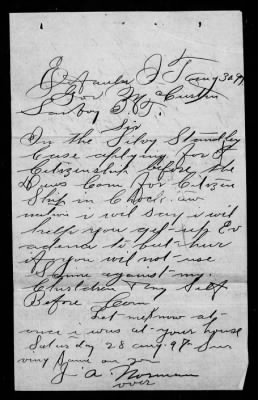 Eufaula I T, aug 30, 97
Gov
Sanboy I. T.
Sir
In the Silvy Standley
Case applying for
Citizenship Before the
Daws Com for Citizen
Ship in Chock. aw
nation i will say i will
help you get up Ev
adence to but hur
if you will not use
Same against my
Children & my Self
Before Com
Let me now at
once i was at your house
Saturday 28 aug. 97
on you
J. A. Norman
over